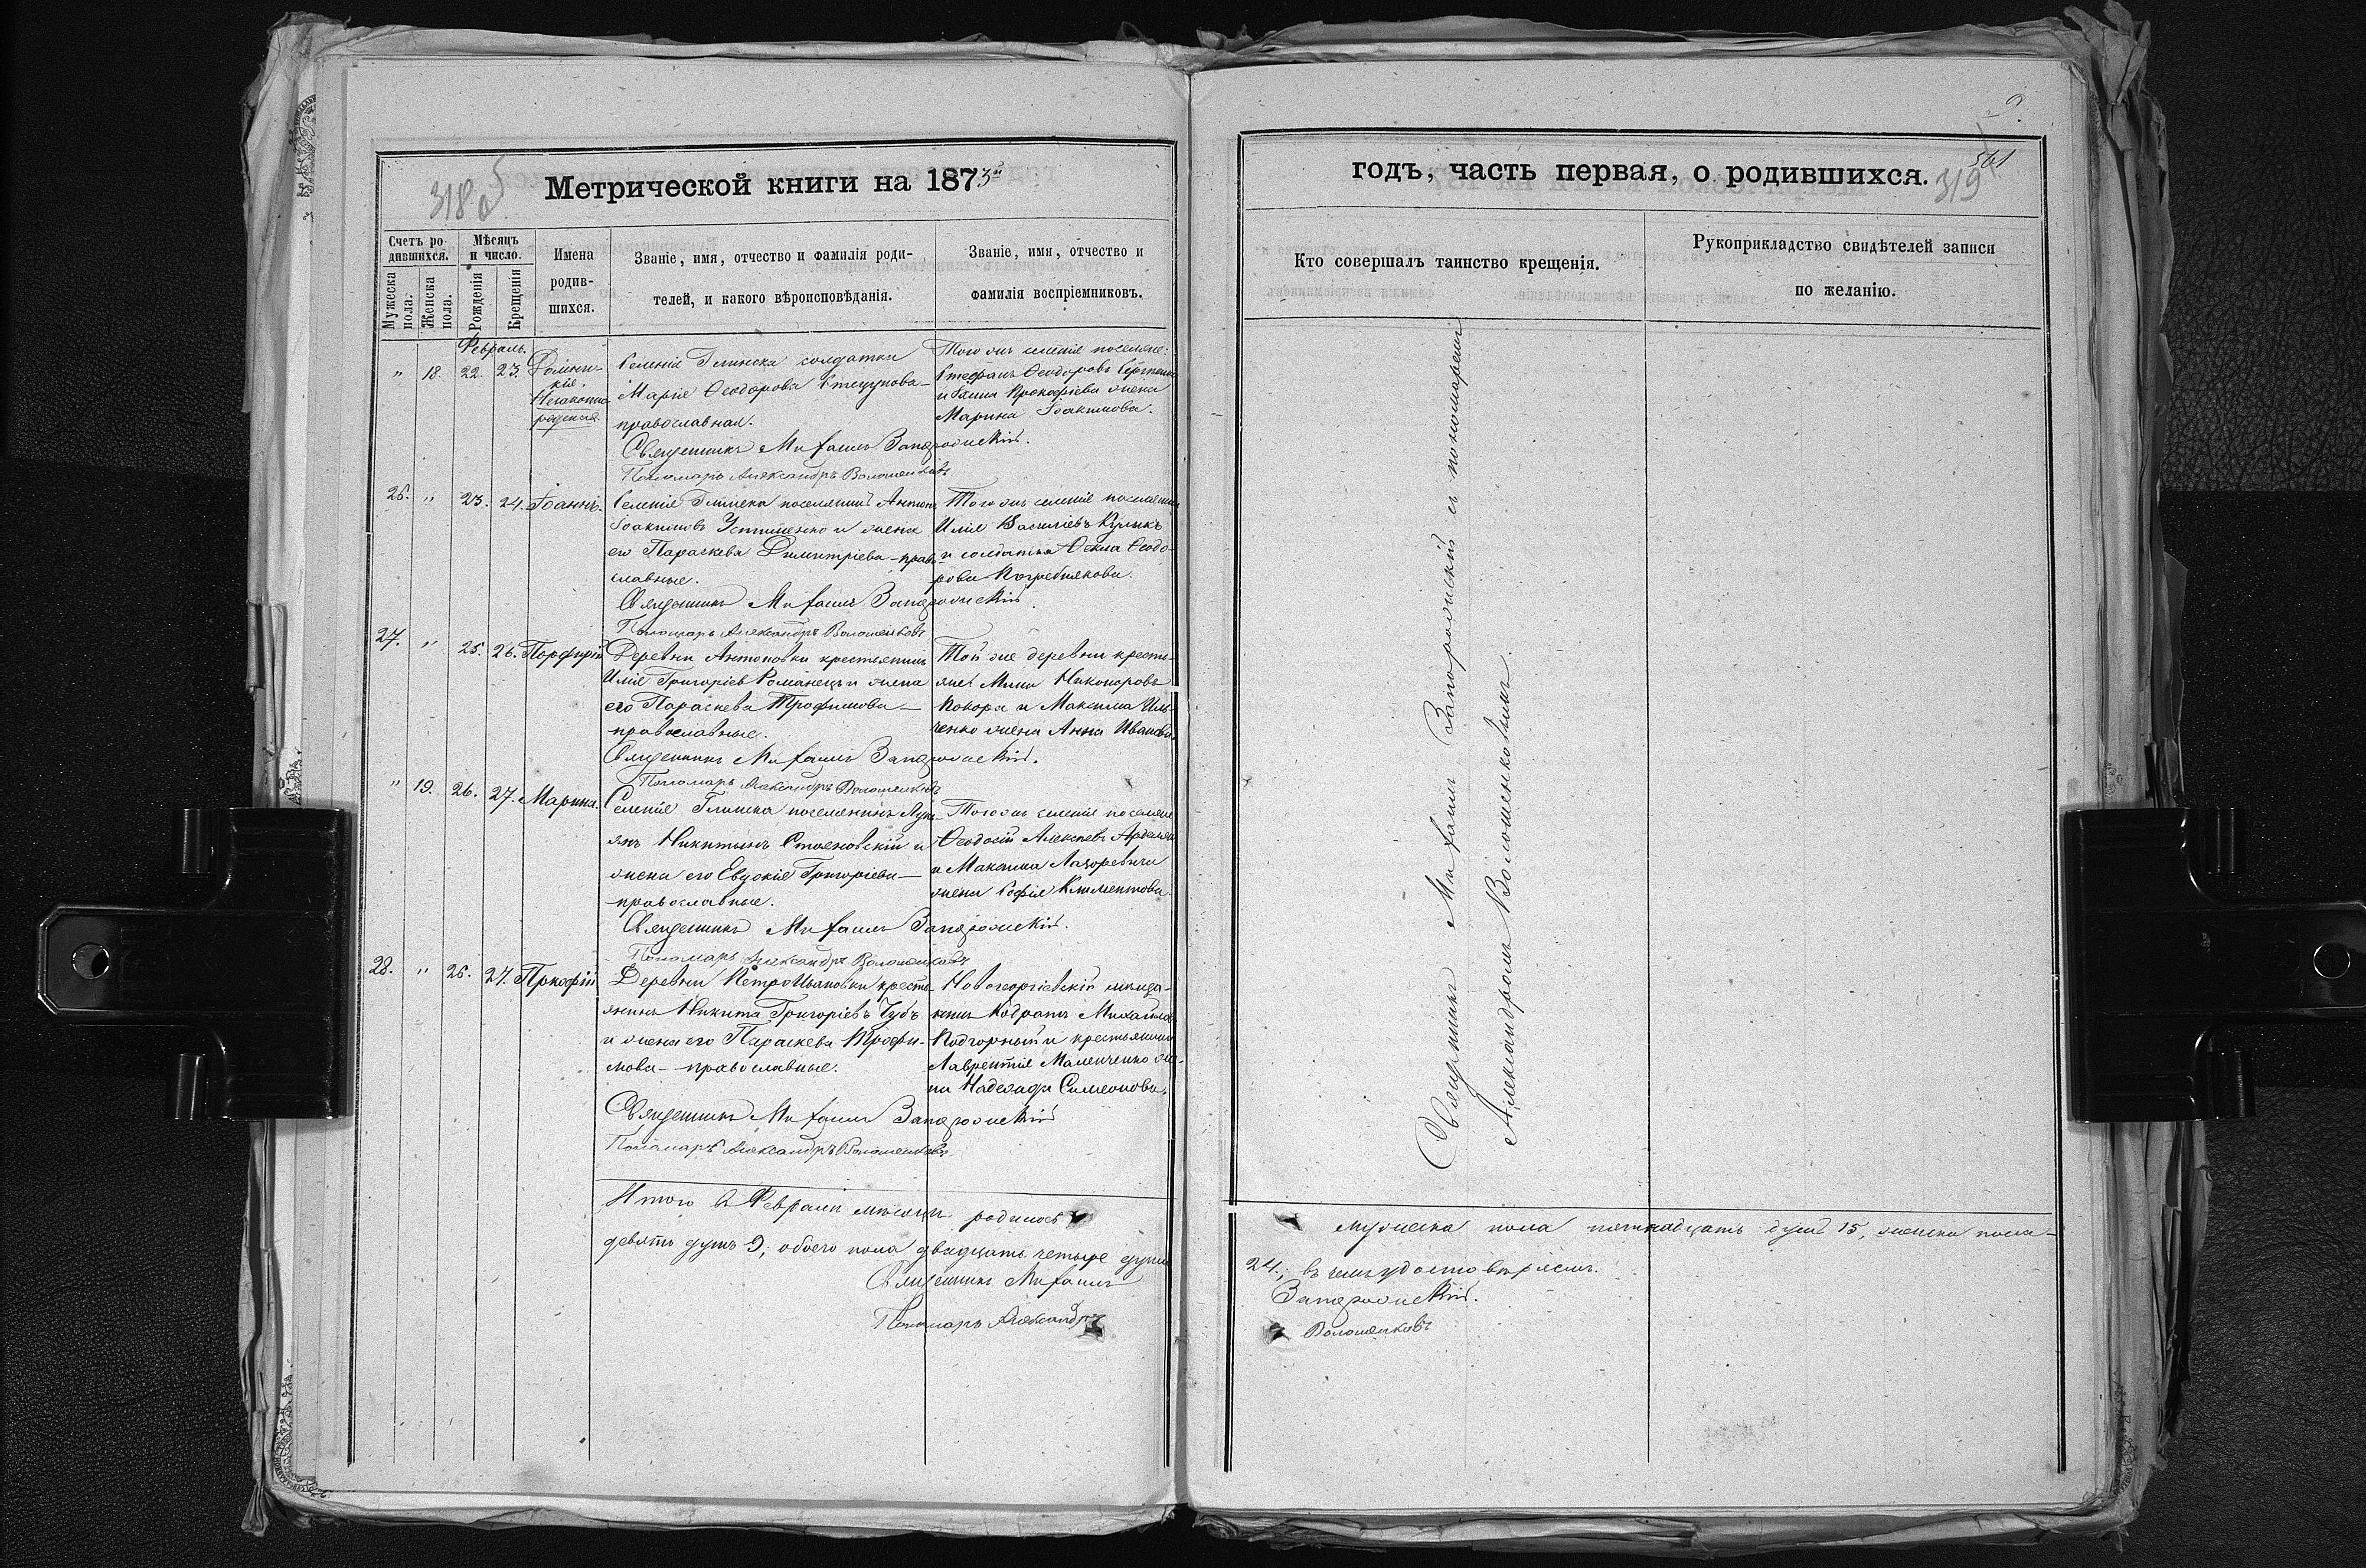 318 об
Метрической книги на 1873й
Счетъ ро-
дившихся.
Мужеска пола.
Женска пола.
Мѣсяцъ
и число.
Рожденія
Крещенія
Имена
родив-
шихся.
Званіе, имя, отчество и фамилія роди-
телей, и какого вѣроисповѣданія.
Званіе, имя, отчество и
фамилія воспріемниковъ.
Февраль.
" 18. 22. 23.
Селенія Глинска солдатка
Марія Ѳеодорова
православная.
Того же селенія поселяне:
Стефанъ Ѳеодоровъ
Прокофіева жена
Марина Іоакимова.
Священникъ Михаилъ Запорожскій.
Пономарь Александръ Волошенковъ
26. " 23. 24. Іоаннъ.
Селенія Глинска поселянинъ Антонъ
Іоакимовъ Устименко и жена
его Параскева Димитріева - право-
славные.
Того же селенія поселянинъ
Илія Василіевъ Кулыкъ
и солдатка Ѳекла Ѳеодо-
рова Погребнякова.
Священникъ Михаилъ Запорожскій.
Пономарь Александръ Волошенковъ
27. " 25. 26. Порфирій
Деревни Антоновки крестьянинъ
Илія Григоріевъ Романецъ и жена
его Параскева Трофимова —
православные.
Той же деревни кресть-
яне: Никоноровъ
Ковора и Максима Иль-
ченко жена Анна Иванова.
Священникъ Михаилъ Запорожскій.
Пономарь Александръ Волошенковъ
" 19. 26. 27. Марина.
Селенія Глинска поселянинъ Лукі-
янъ Никитинъ Стояновскій и
жена его Евдокія Григоріева —
православные.
Того же селенія поселяне
Ѳеодосій Алексѣевъ
и Максима Лазоревича
жена Софія Климентова.
Священникъ Михаилъ Запорожскій.
Пономарь Александръ Волошенковъ
28. " 26. 27. Пркофій
Деревни ПетроИвановки кресть-
янинъ Никита Григоріевъ Чубъ
и жена его Параскева Трофи-
мова - православные.
Новогеоргіевскій мѣща-
нинъ Кодратъ Михайловъ
Подгорный и крестьянина
Лаврентія Маленченко же-
на Надежда Симеонова.
Священникъ Михаилъ Запорожскій
Пономарь Александръ Волошенковъ
Итого въ Февралѣ мѣсяцѣ родилось
девять душъ 9, обоего пола двадцать четыре души
Священникъ Михаилъ
Пономарь Александръ
9.
561
годъ, часть первая, о родившихся.
319
Кто совершалъ таинство крещенія.
Рукоприкладство свидѣтелей записи
по желанію.
Священникъ Михаилъ Запорожскій съ пономаремъ
Александромъ Волошенковымъ.
мужеска пола пятнадцать душъ 15, женска пола -
24., въ чемъ удостовѣряемъ.
Запорожскій.
Волошенковъ